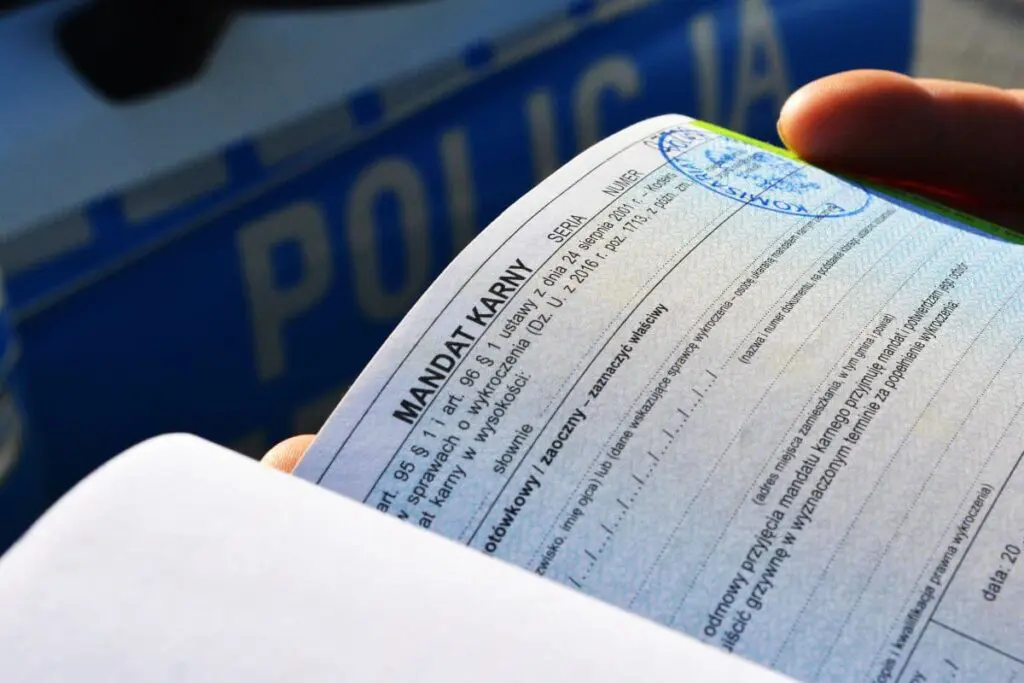 POLICJA
MANDAT KARNY SERIA NUMER
art. 95 § 1 i art. 96 § 1 ustawy z dnia 24 sierpnia 2001 r. – Kodeks
w sprawach o wykroczenia (Dz. U. z 2016 r. poz. 1713, z późn. zm
at karny w wysokości:
słownie
otówkowy / zaoczny – zaznaczyć właściwy
zwisko, imię ojca) lub (dane wskazujące sprawcę wykroczenia – osobę ukaraną mandatem
(nazwa i numer dokumentu, na podstawie którego
(adres miejsca zameszkania, w tym gmina i powiat)
odmowy przyjęcia mandatu karnego przyjmuję mandat i potwierdzam jego odbiór
uiścić grzywnę w wyznaczonym terminie za popełnienie wykroczenia
opis i kwalifikacja prawna wykroczenia)
data: 20